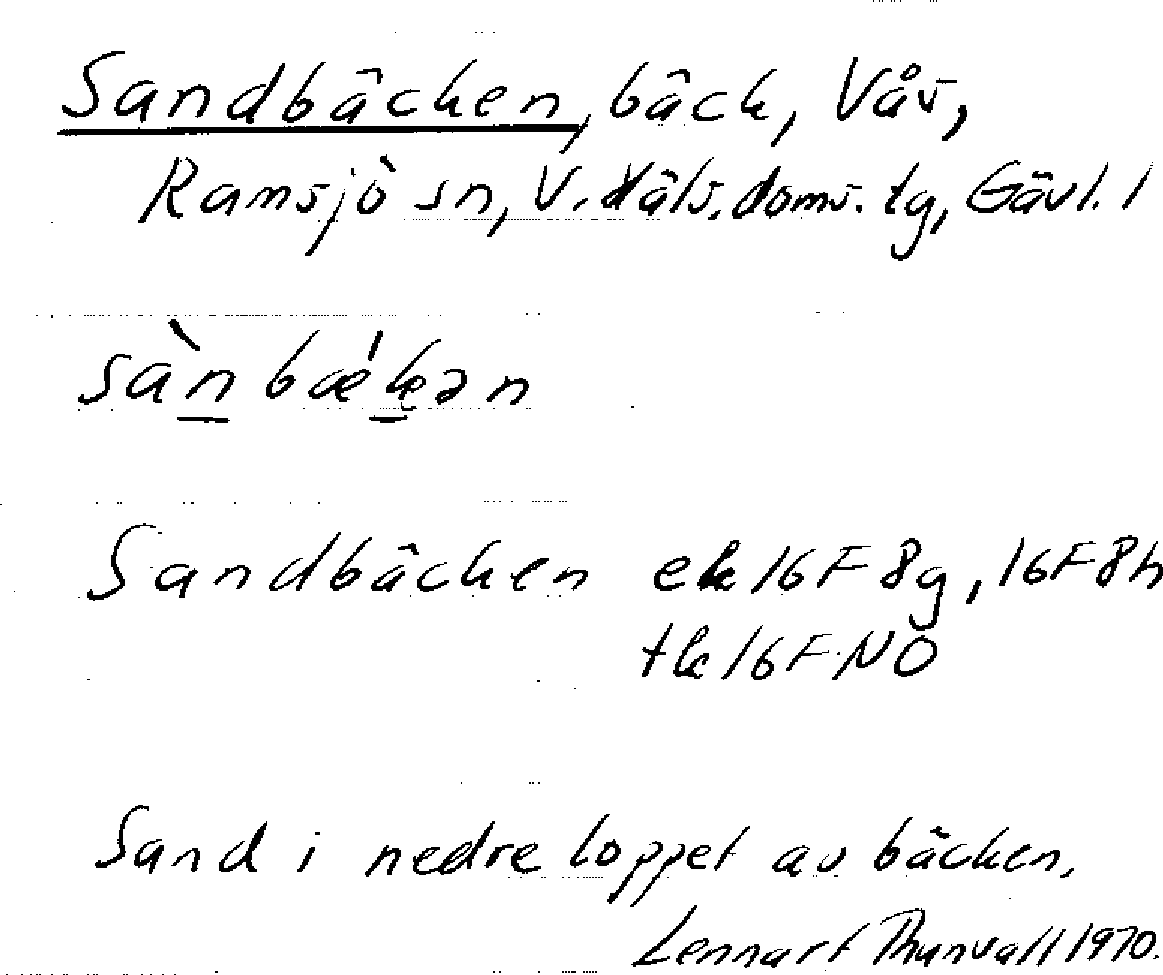 Sandbäcken, bäck, Vås,
Ramsjö sn, V. Häls. doms. tg, Gävl. l
sàn bæ'kən
Sandbäcken ek 16F 8g, 16F 8h
tk 16F NO
Sand i nedre loppet av bäcken.
Lennart Thunvall 1970.